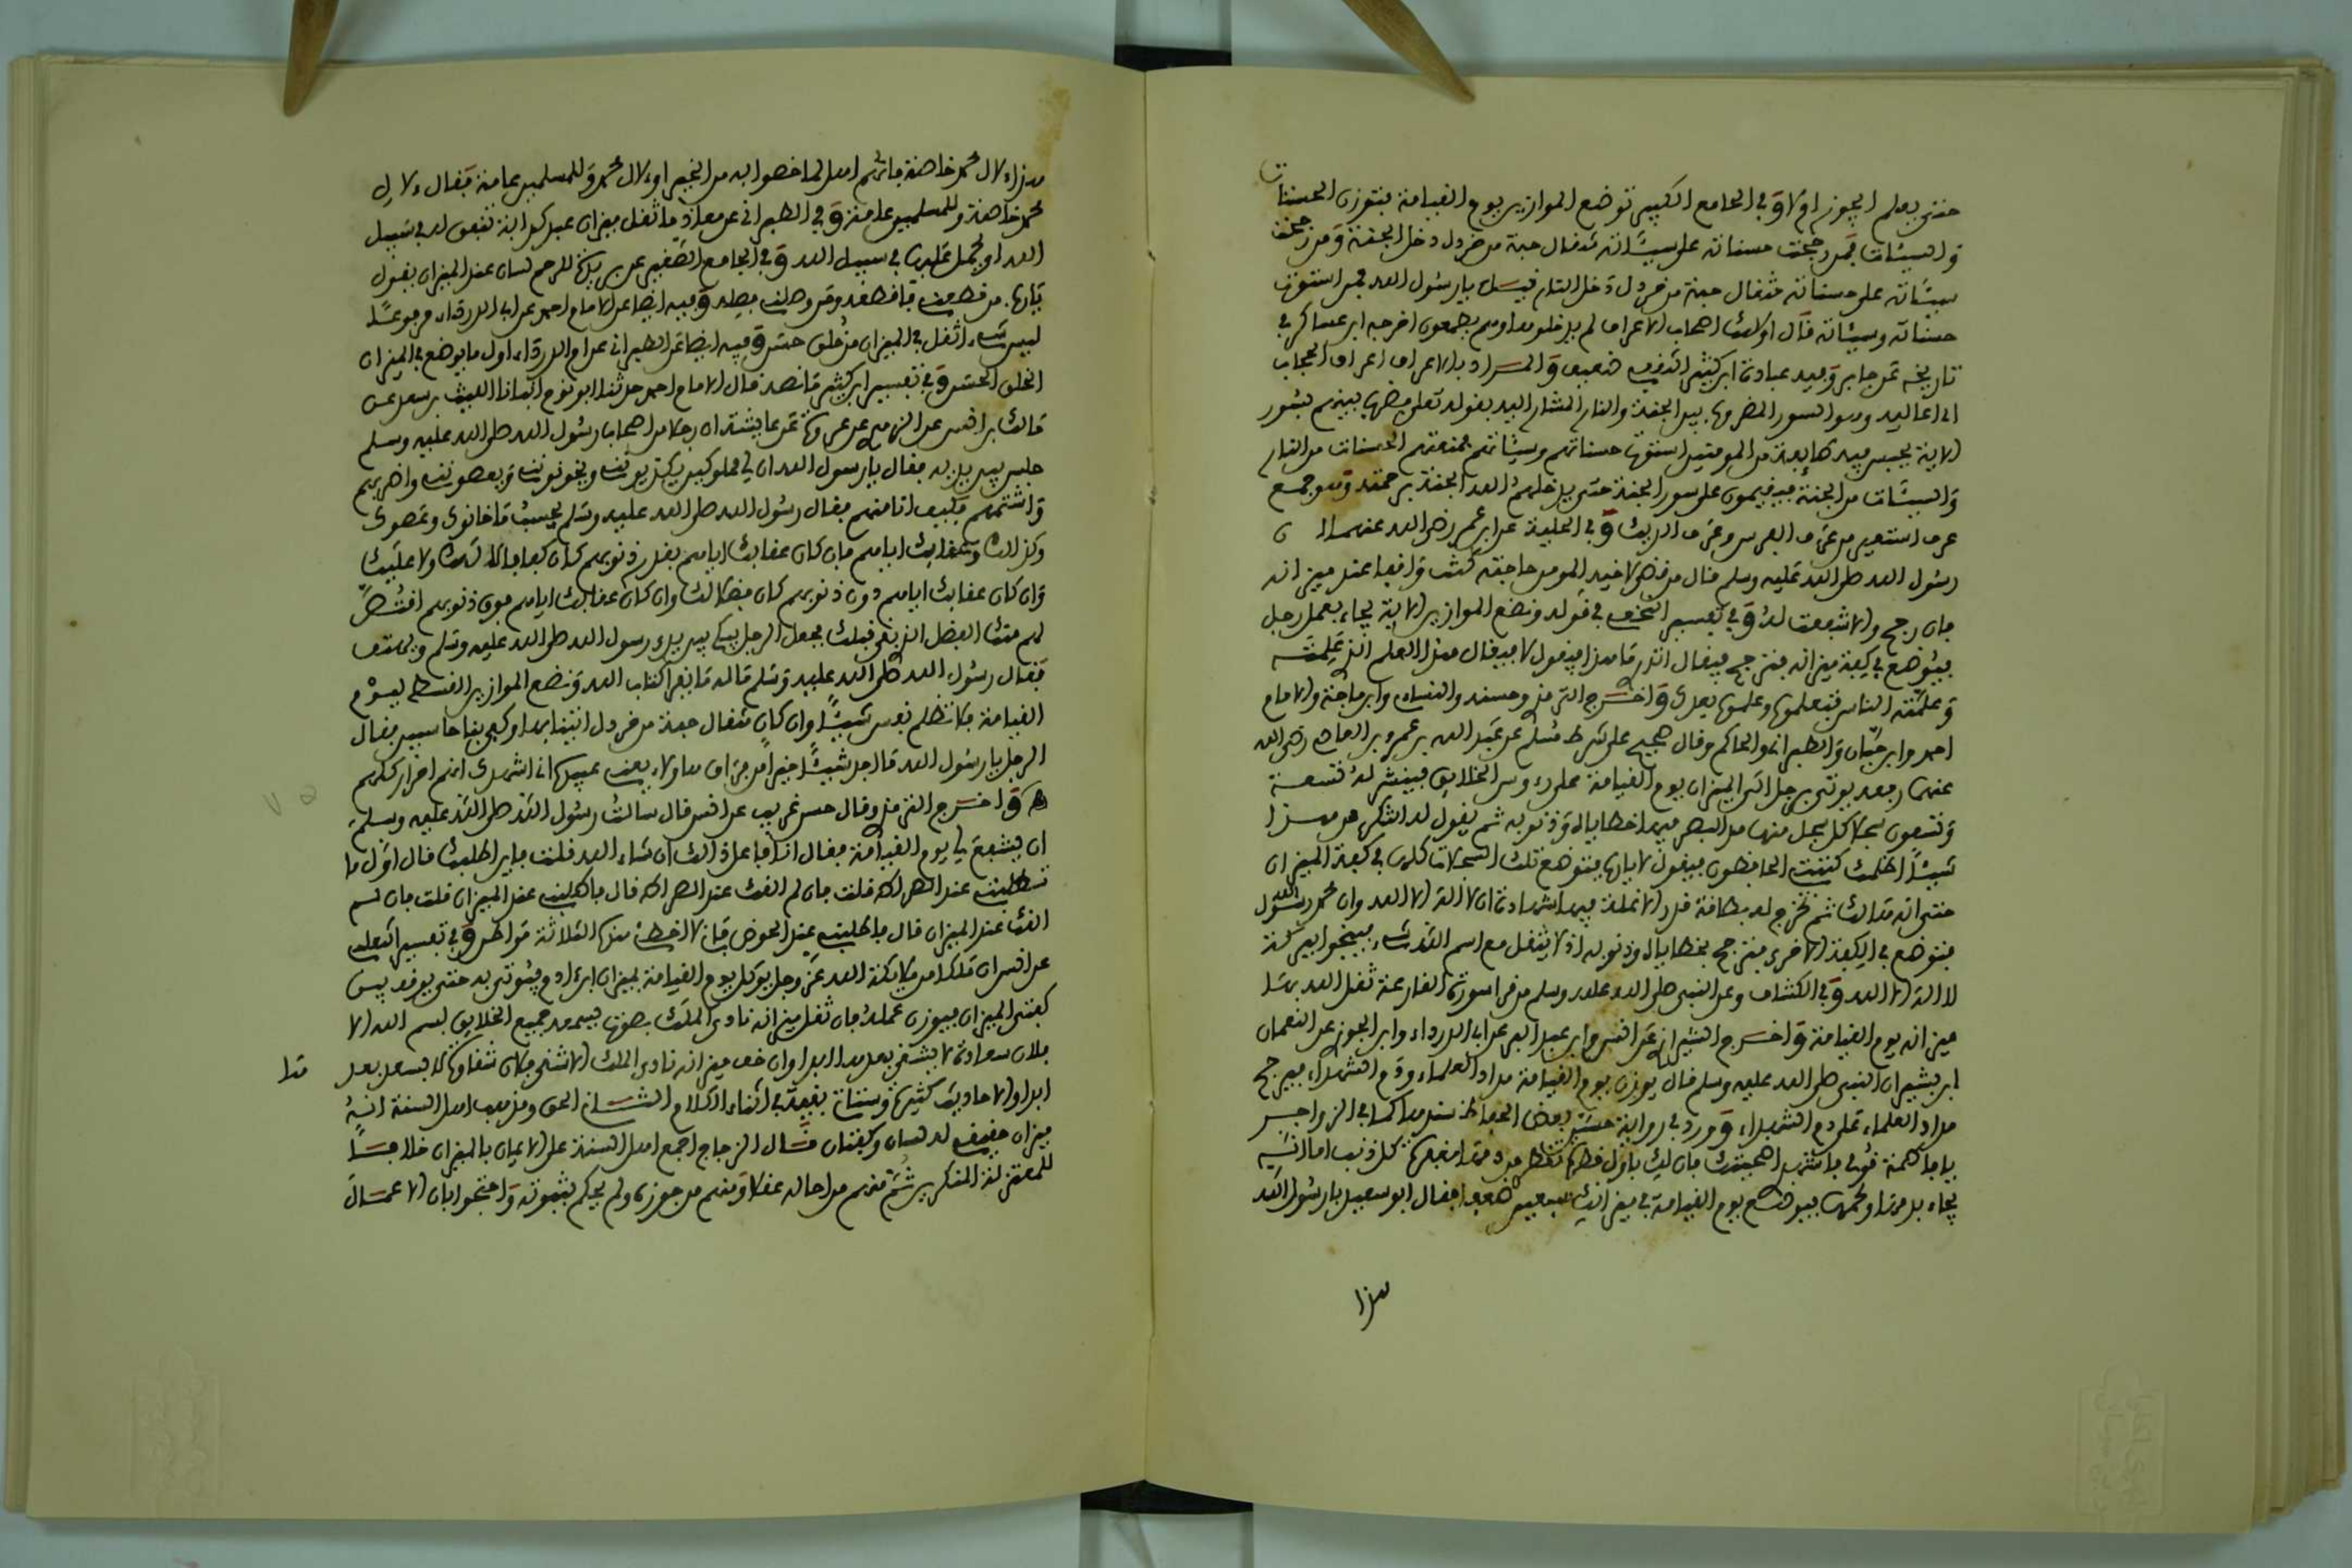 حتى يعلم ايجوز ام لا وفي الجامع الكبير توضع الموازين يوم القيامة فتوزن الحسنات
والسيئات فمن رجحت حسناته على سيئاته مثقال حبة من خردل دخل الجنة ومن رجحت
سيئاته على حسناته مثقال حبة من خردل دخل النار قيل يا رسول الله فمن استوت
حسناته وسيئاته قال اولئك اصحاب الاعراف لم يدخلوها وهم يطمعون اخرجه ابن عساكر في
تاريخه عن جابر وفيه عباد بن كثير الثقفي ضعيف والمراد بالاعراف اعراف الحجاب
اي اعاليه وهو السور المضروب بين الجنة والنار المشار اليه بقوله تعلى فضرب بينهم بسور
الاية يحبس فيه طائفة من المومنين استوت حسناتهم وسيئاتهم فمنعتهم الحسنات من النار
والسيئات من الجنة فيقيمون على سور الجنة حتى يدخلهم الله الجنة برحمته وهو جمع
عرف استعير من عرف الفرس وعرف الديك وفي الحلية عن ابن عمر رضي الله عنهما ان
رسول الله صلى الله عليه وسلم قال من قضى لاخيه المومن حاجة كنت واقفا عند ميزانه
فان رجح والا شفعت له وفي تفسير النخعي في قوله ونضع الموازين الاية يجاء بعمل رجل
فيوضع في كفة ميزانه فترجح فيقال اتدري ما هذا فيقول لا فيقال هذا العلم الذي علمته
وعلمته الناس فتعلموه وعلموه بعدك واخرج الترمذي وحسنه والنسائي وابن ماجة والامام
احمد وابن حبان والطبراني والحاكم وقال صحيح على شرط مسلم عن عبد الله بن عمرو بن العاص رضي الله
عنهما رفعه يوتى برجل الى الميزان يوم القيامة على رءوس الخلائق فينشر له تسعة
وتسعون سجلا كل سجل منها مد البصر فيها خطاياه وذنوبه ثم يقول له اتنكر من هذا
شيئا اظلمك كتبتي الحافظون فيقول لا يا رب فتوضع تلك السجلات كلها في كفة الميزان
حتى انه هنالك ثم تخرج له بطاقة قدر الانملة فيها شهادة ان لا اله الا الله وان محمد رسول الله
فتوضع في الكفة الاخرى فترجح بخطاياه وذنوبه اذ لا يثقل مع اسم الله شيء فينجوا ببركة
لا اله الا الله وفي الكشاف وعن النبي صلى الله عليه وسلم من قرا سورة القارعة ثقل الله بها
ميزانه يوم القيامة واخرج الشيرازي عن انس وابن عبد البر عن ابي الدرداء وابن الجوزي عن النعمان
ابن بشير ان النبي صلى الله عليه وسلم قال يوزن يوم القيامة مداد العلماء ودم الشهداء فيرجح
مداد العلماء على دم الشهداء وورد في رواية حسن بعض الحفاظ سندها كما في الزواجر
يا فاطمة قومي فاشهدي اضحيتك فان لك باول قطرة تقطر من دمها مغفرة كل ذنب اما انه
يجاء بدمها ولحمها فيوضع يوم القيامة في ميزانك سبعين ضعفا فقال ابو سعيد يا رسول الله
هذا
هذا لال محمد خاصة فانهم اهل لما خصوا به من الخير او لال محمد وللمسلمين عامة فقال لال
محمد خاصة وللمسلمين عامة وفي الطبراني عن معاذ ما ثقل ميزان عبد كدابة تنفق له في سبيل
الله او يحمل عليها في سبيل الله وفي الجامع الصغير عن بريدة للرحم لسان عند الميزان يقول
يا رب من قطعني فاقطعه ومن وصلني فصله وفيه ايضا عن الامام احمد عن ابي الدرداء مرفوعا
ليس شيء اثقل في الميزان من خلق حسن وفيه ايضا عن الطبراني عن ام الدرداء اول ما يوضع في الميزان
الخلق الحسن وفي تفسير ابن كثير ما نصه قال الامام احمد حدثنا ابو نوح انبانا الليث بن سعد عن
مالك بن انس عن الزهري عن عروة عن عايشة ان رجلا من اصحاب رسول الله صلى الله عليه وسلم
جلس بين يديه فقال يا رسول الله ان لي مملوكين يكذبونني ويخونونني ويعصونني واضربهم
واشتمهم فكيف انا منهم فقال رسول الله صلى الله عليه وسلم يحسب ما خانوك وعصوك
وكذبوك وعقابك اياهم فان كان عقابك اياهم بقدر ذنوبهم كان كفافا لا لك ولا عليك
وان كان عقابك اياهم دون ذنوبهم كان فضلا لك وان كان عقابك اياهم فوق ذنوبهم اقتص
لهم منك الفضل الذي بقي قبلك فجعل الرجل يبكي بين يدي رسول الله صلى الله عليه وسلم ويهتف
فقال رسول الله صلى الله عليه وسلم ما له ما يقرا كتاب الله ونضع الموازين القسط ليوم
القيامة فلا تظلم نفس شيئا وان كان مثقال حبة من خردل اتينا بها وكفى بنا حاسبين فقال
الرجل يا رسول الله ما اجد شيئا خيرا من فراق هاولاء يعني عبيده اني اشهدك انهم احرار كلهم
واخرج الترمذي وقال حسن غريب عن انس قال سالت رسول الله صلى الله عليه وسلم
ان يشفع لي يوم القيامة فقال انا فاعل ذلك ان شاء الله قلت فاين اطلبك قال اول ما
تطلبني عند الصراط قلت فان لم القك عند الصراط قال فاطلبني عند الميزان قلت فان لم
القك عند الميزان قال فاطلبني عند الحوض فاني لا اخطئ هذه الثلاثة مواطن وفي تفسير الثعلبي
عن انس ان ملكا من ملائكة الله عز وجل يوكل يوم القيامة بميزان ابن ادم فيوتى به حتى يوقف بين
كفتي الميزان فيوزن عمله فان ثقل ميزانه نادى الملك بصوت يسمعه جميع الخلائق بسم الله الا
فلان سعادة لا يشقى بعدها ابدا وان خف ميزانه نادى الملك الا شقي فلان شقاوة لا يسعد بعدها
ابدا والاحاديث كثيرة وستاتي بقية في اثناء الكلام الشاني الحق ومذهب اهل السنة انه
ميزان حقيقي له لسان وكفتان قال الزجاج اجمع اهل السنة على الايمان بالميزان خلافا
للمعتزلة المنكرين ثم منهم من احاله عقلا ومنهم من جوزه ولم يحكم بثبوته واحتجوا بان الاعمال